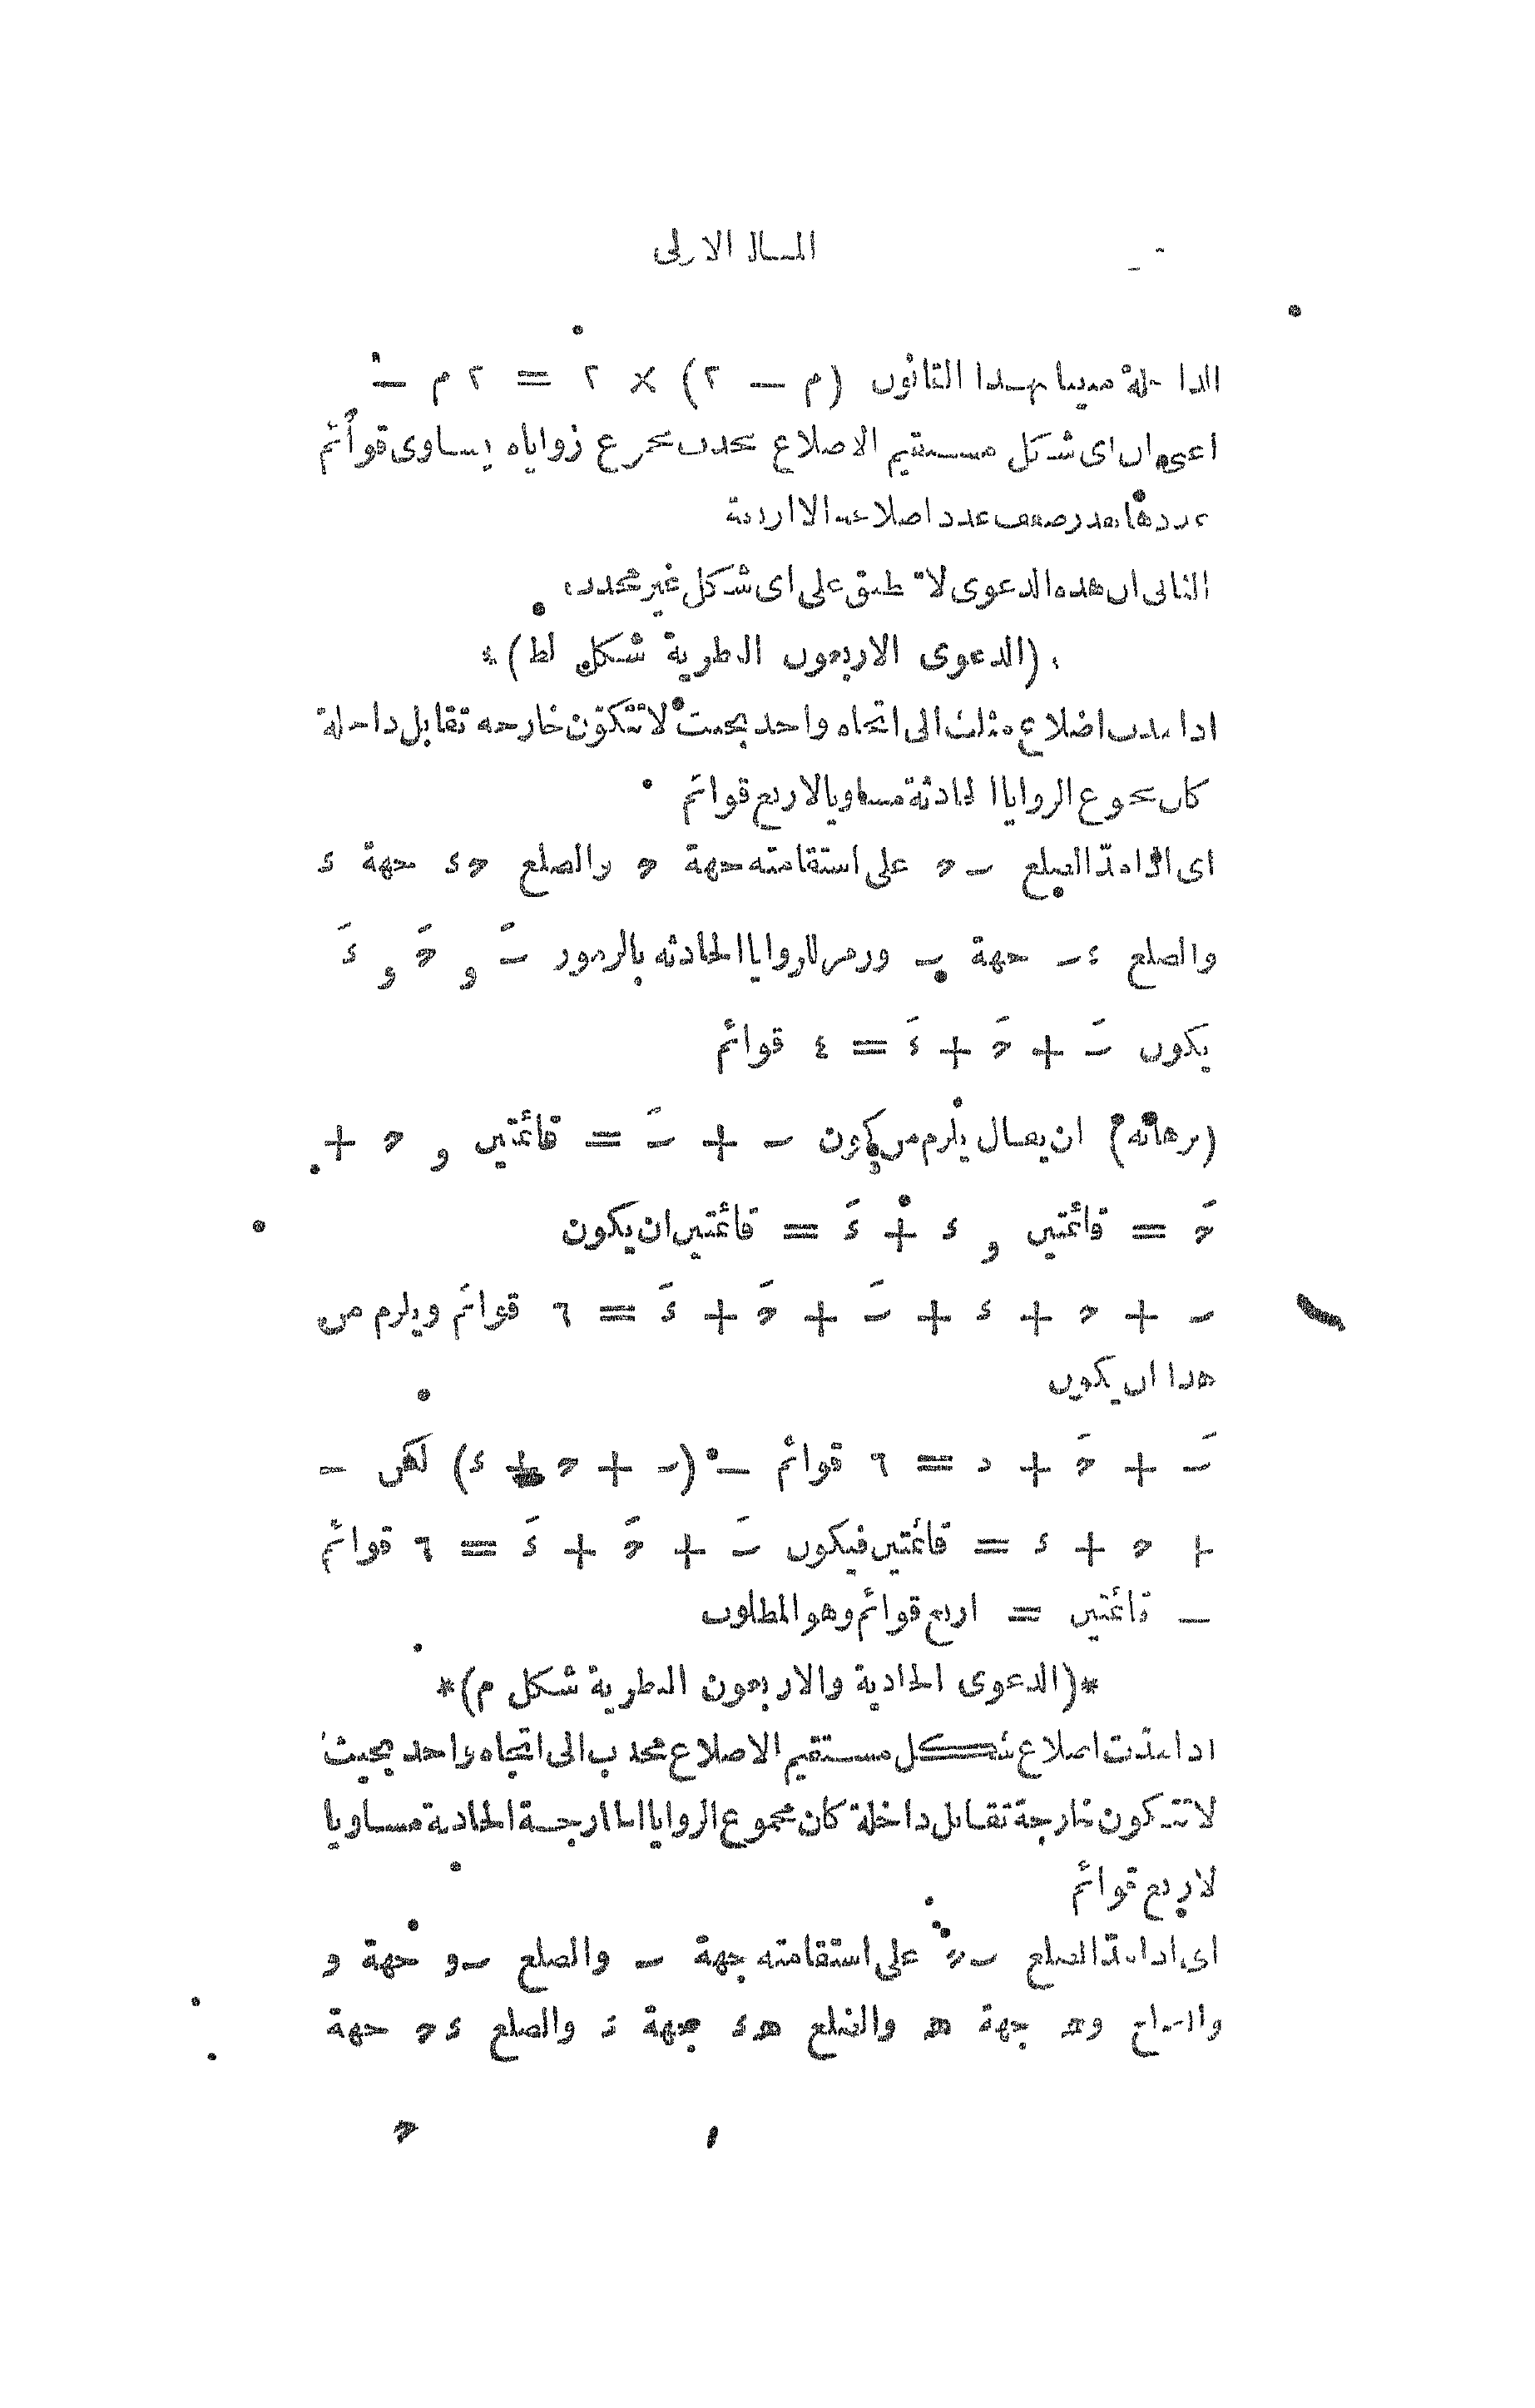 المقالة الاولى
الداخلة مبينا بهذا القانون (م — ٢) × ٢ = ٢ م — ٤
اعنى ان اى شكل مستقيم الاضلاع محدب مجموع زواياه يساوى قوائم
عددها بقدر ضعف عدد اضلاعه الا اربعة
الثانى ان هذه الدعوى لا تطبق على اى شكل غير محدب
(الدعوى الاربعون النظرية شكل لط)
اذا مدت اضلاع مثلث الى اتجاه واحد بحيث لا تتكوّن خارجه تقابل داخلة
كان مجموع الزوايا الحادثة مساويا لاربع قوائم
اى اذا مدّ الضلع ب ح على استقامته جهة ح والضلع ح ء جهة ء
والضلع ء ب جهة ب ورمز للزوايا الحادثه بالرموز بَ و حَ و ءَ
يكون بَ + حَ + ءَ = ٤ قوائم
(برهانه) ان يقال يلزم من كون ب + بَ = قائمتين و ح +
حَ = قائمتين و ء + ءَ = قائمتين ان يكون
ب + ح + ء + بَ + حَ + ءَ = ٦ قوائم ويلزم من
هذا ان يكون
بَ + حَ + ءَ = ٦ قوائم — (ب + ح + ء) لكن ب
+ ح + ء = قائمتين فيكون بَ + حَ + ءَ = ٦ قوائم
— قائمتين = اربع قوائم وهو المطلوب
*(الدعوى الحادية والاربعون النظرية شكل م)*
اذا مدّت اضلاع شكل مستقيم الاضلاع محدب الى اتجاه واحد بحيث
لا تتكون خارجة تقابل داخلة كان مجموع الزوايا الخارجة الحادثة مساويا
لاربع قوائم
اى اذا مدّ الضلع ب ح على استقامته جهة ب والضلع ب و جهة و
والضلع و ه جهة ه والضلع ه ء جهة ء والضلع ء ح جهة
ح